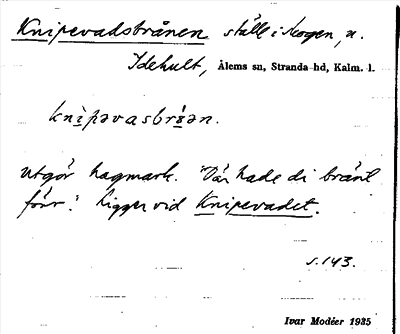 Knipevadsbrånen ställe i skogen, n.
Idehult, Ålems sn, Stranda hd, Kalm. l.
utgör hagmark. "Där hade di bränt
förr". Ligger vid Knipevadet.
s. 143.
Ivar Modéer 1935